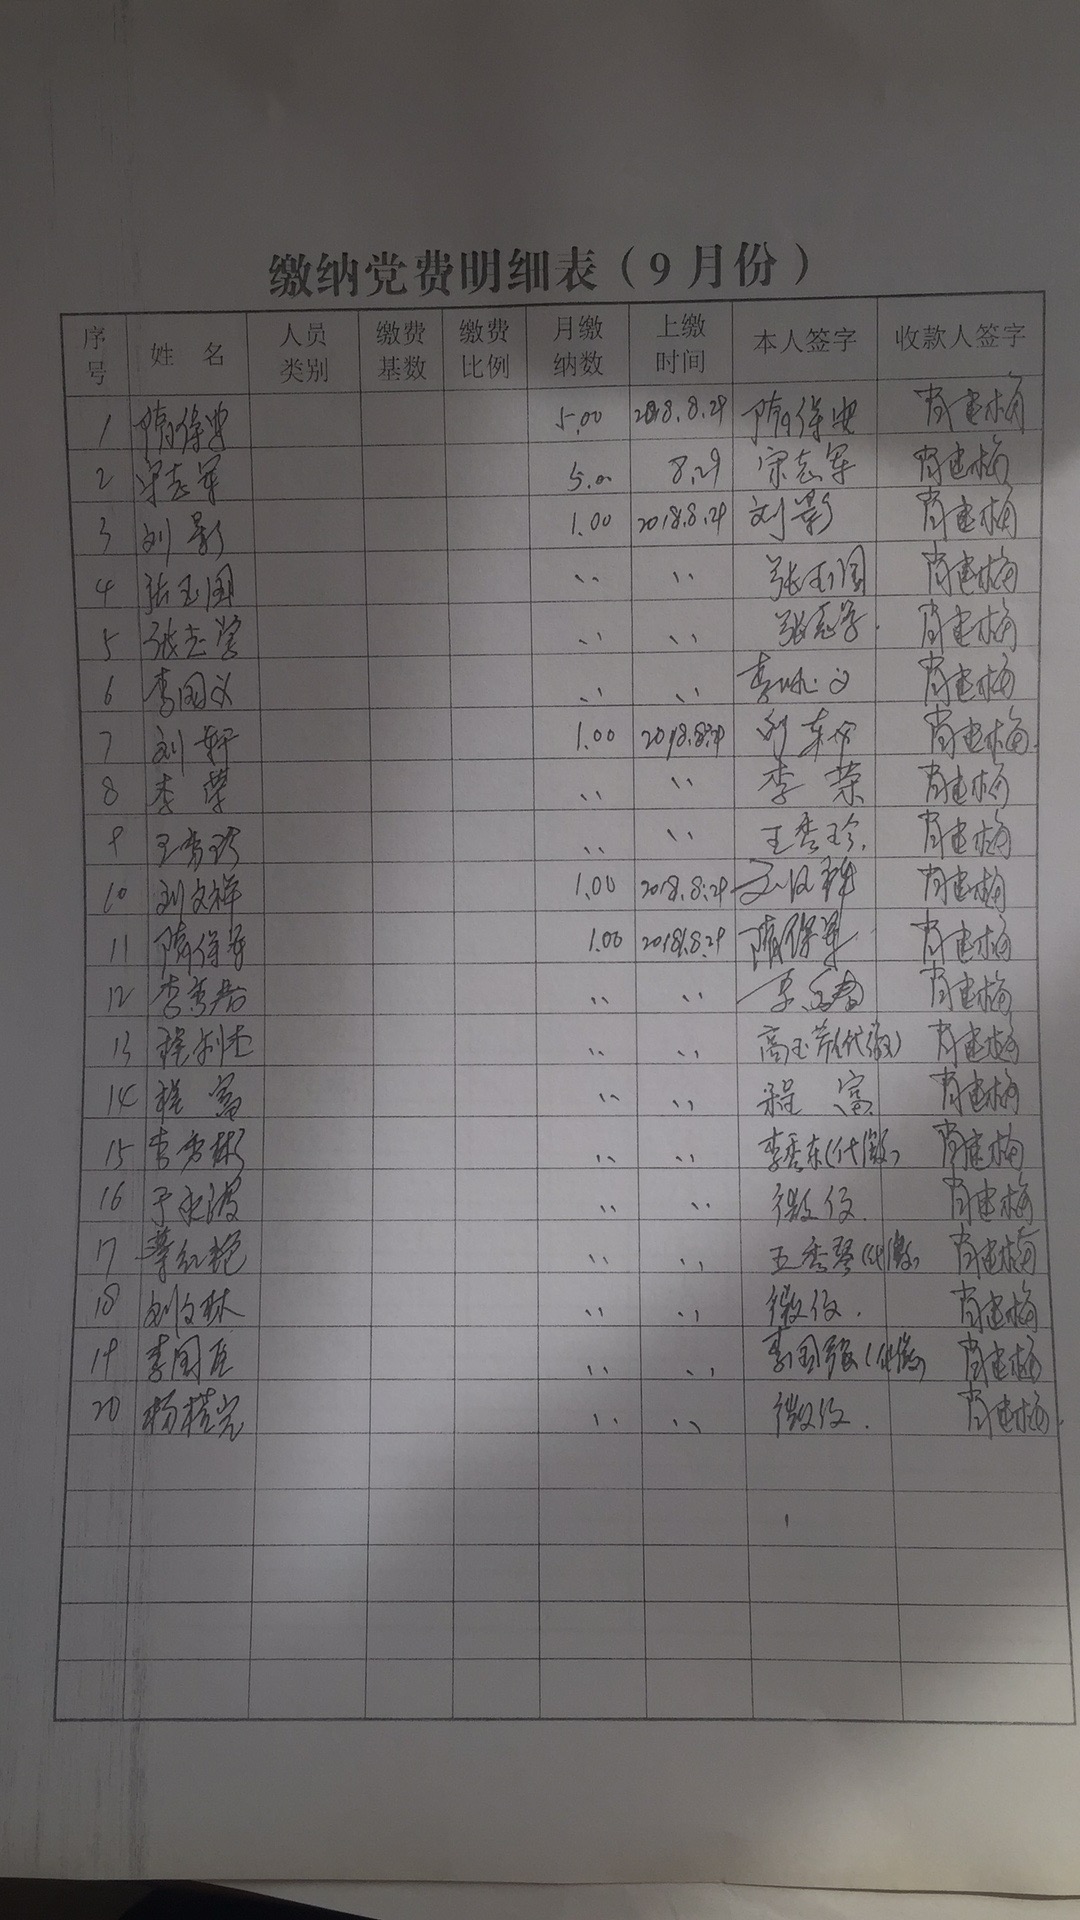 缴纳党费明细表（9月份）
序号 姓名 人员类别 缴费基数 缴费比例 月缴纳数 上缴时间 本人签字 收款人签字
1 隋保忠 5.00 2018.8.29 隋保忠 肖建梅
2 宋志军 5.0 8.29 宋志军 肖建梅
3 刘影 1.00 2018.8.29 刘影 肖建梅
4 张玉国 〃 〃 张玉国 肖建梅
5 张志学 〃 〃 张志学 肖建梅
6 李国义 〃 〃 李国义 肖建梅
7 刘 1.00 2018.8.29 刘 肖建梅
8 李荣 〃 〃 李荣 肖建梅
9 王秀珍 〃 〃 王秀珍 肖建梅
10 刘文祥 1.00 2018.8.29 肖建梅
11 隋保军 1.00 2018.8.29 隋保军 肖建梅
12 李秀春 〃 〃 肖建梅
13 程利杰 〃 〃 高玉芳(代缴) 肖建梅
14 程富 〃 〃 程富 肖建梅
15 李秀彬 〃 〃 李秀东(代缴) 肖建梅
16 于永波 〃 〃 微信 肖建梅
17 红艳 〃 〃 王秀琴(代缴) 肖建梅
18 刘文林 〃 〃 微信 肖建梅
19 李国臣 〃 〃 李国强(代缴) 肖建梅
20 杨桂 〃 〃 微信 肖建梅